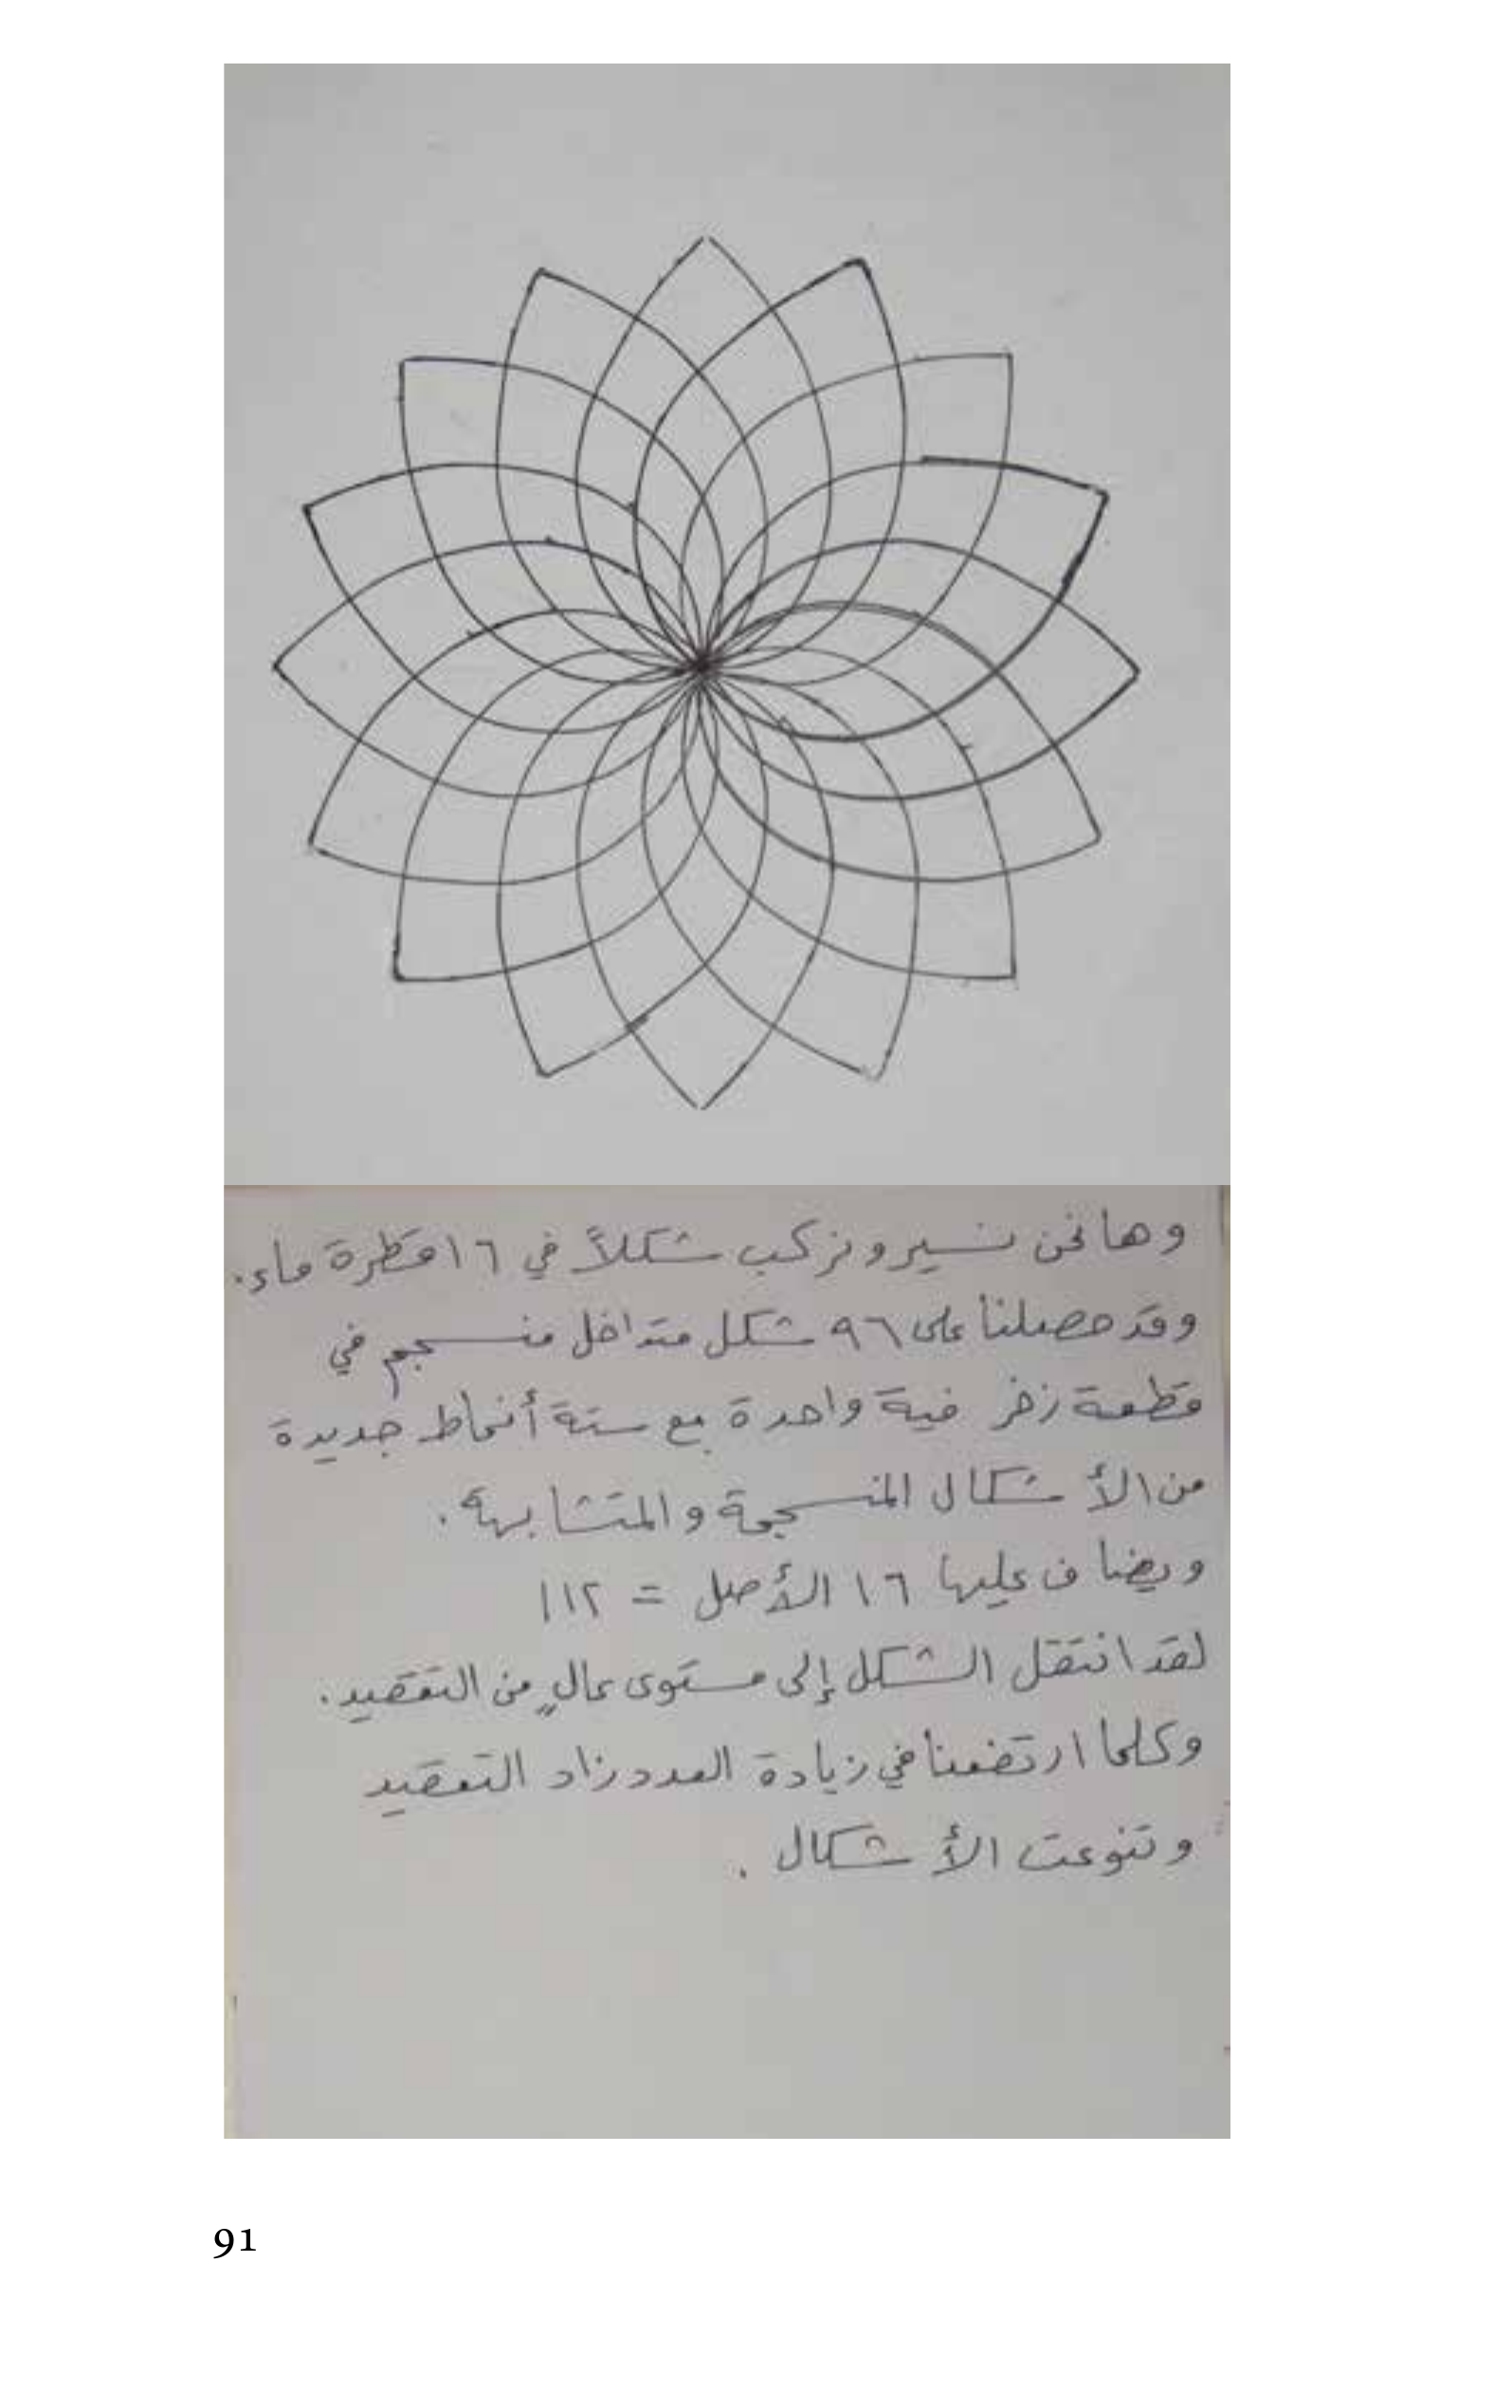 وها نحن نسير ونركب شكلاً في ١٦ قطرة ماء.
وقد حصلنا على ٩٦ شكل متداخل منسجم في
قطعة زخرفية واحدة مع ستة أنماط جديدة
من الأشكال المنسجمة والمتشابهة.
ويضاف عليها ١٦ الأصل = ١١٢
لقد انتقل الشكل إلى مستوى عالٍ من التعقيد.
وكلما ارتفعنا في زيادة العدد زاد التعقيد
وتنوعت الأشكال.
91